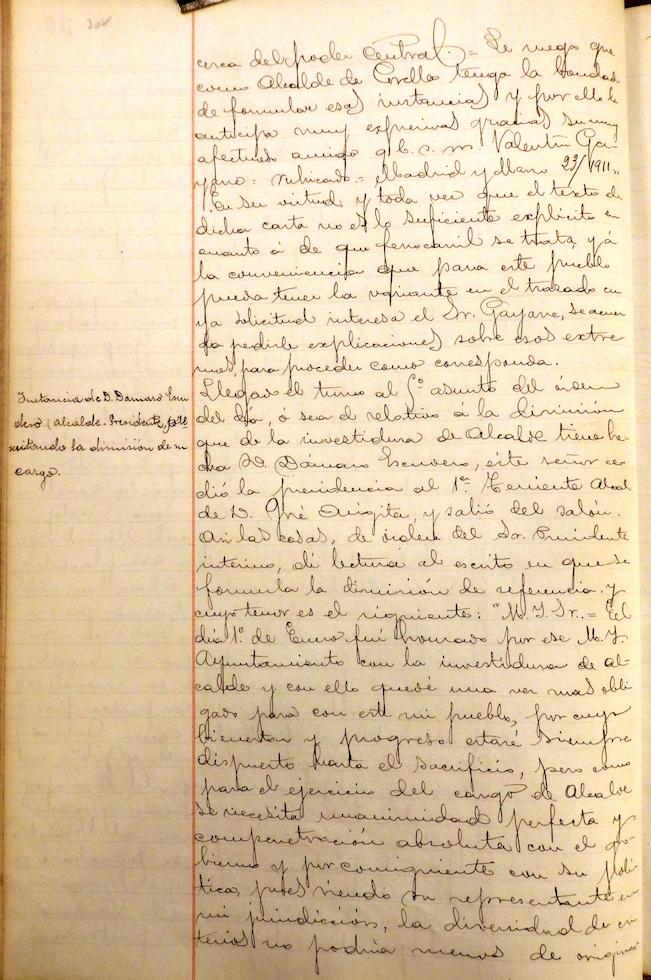 cerca del poder Central. = Le ruego que
como Alcalde de Corella tenga la bondad
de formular esas instancias y por ello le
anticipa muy expresivas gracias su muy
afectuoso amigo q. b. s. m. Valentín Ga-
yarre = rubricado = Madrid y Marzo 23/1911."
En su virtud y toda vez que el texto de
dicha carta no es lo suficiente explícito en
cuanto á de que ferrocarril se trata, y á
la conveniencia que para este pueblo
pueda tener la variante en el trazado cu-
ya solicitud interesa el Sr. Gayarre, se acuer-
da pedirle explicaciones sobre esos extre-
mos, para proceder como corresponda.
Instancia de D. Dámaso Escu-
dero, Alcalde-Presidente,
citando la dimisión de su
cargo.
Llegado el turno al 5º asunto del órden
del día, ó sea el relativo á la dimisión
que de la investidura de Alcalde tiene he-
cha D. Dámaso Escudero, este señor ce-
dió la presidencia al 1er Teniente Alcal-
de D. José y salió del salón.
Así las cosas, de orden del Sr. Presidente
interino, dí lectura al escrito en que se
formula la dimisión de referencia y
cuyo tenor es el siguiente: "M. I. Sr. = El
día 1º de Enero fuí honrado por ese M. I.
Ayuntamiento con la investidura de Al-
calde y con ello quedé una vez mas obli-
gado para con este mi pueblo, por cuyo
bienestar y progreso estaré siempre
dispuesto hasta el sacrificio, pero como
para el ejercicio del cargo de Alcalde
se necesita unanimidad perfecta y
compenetración absoluta con el go-
bierno y por consiguiente con su polí-
tica, pues siendo su representante en
mi jurisdicción, la diversidad de cri-
terios no podría menos de originar